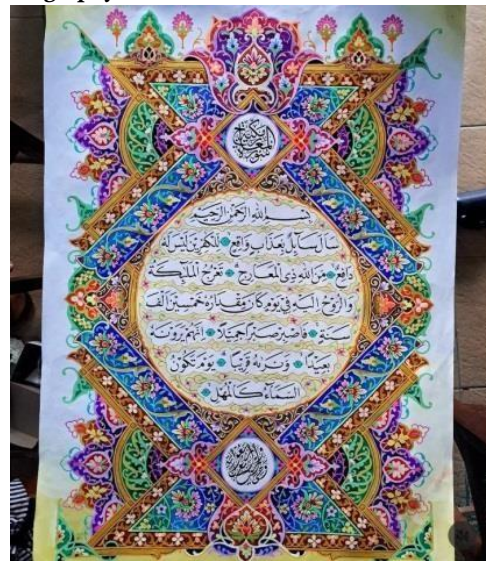 سورة المعارج مكية
بِسْمِ اللهِ الرَّحْمٰنِ الرَّحِيْمِ
سَاَلَ سَاۤئِلٌۢ بِعَذَابٍ وَّاقِعٍ لِّلْكٰفِرِيْنَ لَيْسَ لَهٗ
دَافِعٌ مِّنَ اللهِ ذِى الْمَعَارِجِ تَعْرُجُ الْمَلٰۤئِكَةُ
وَالرُّوْحُ اِلَيْهِ فِيْ يَوْمٍ كَانَ مِقْدَارُهٗ خَمْسِيْنَ اَلْفَ
سَنَةٍ فَاصْبِرْ صَبْرًا جَمِيْلًا اِنَّهُمْ يَرَوْنَهٗ
بَعِيْدًا وَّنَرٰىهُ قَرِيْبًا يَوْمَ تَكُوْنُ
السَّمَاۤءُ كَالْمُهْلِ